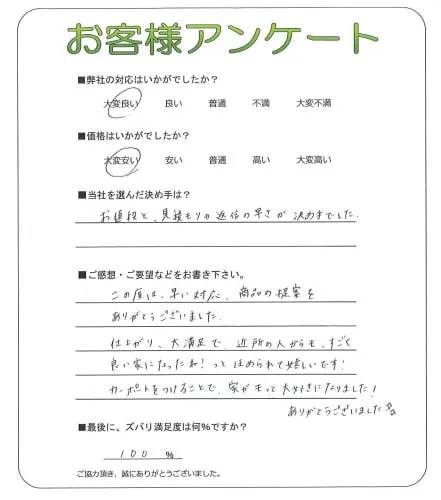 お客様アンケート
■弊社の対応はいかがでしたか？
大変良い　良い　普通　不満　大変不満
■価格はいかがでしたか？
大変安い　安い　普通　高い　大変高い
■当社を選んだ決め手は？
お値段と、見積もりの返信の早さが決め手でした。
■ご感想・ご要望などをお書き下さい。
この度は、早い対応、商品の提案を
ありがとうございました。
仕上がり、大満足で、近所の人からも、すごく
良い家になったね！っとほめられて嬉しいです！
カーポートをつけることで、家がもっと大好きになりました！
ありがとうございました
■最後に、ズバリ満足度は何％ですか？
100 ％
ご協力頂き、誠にありがとうございました。